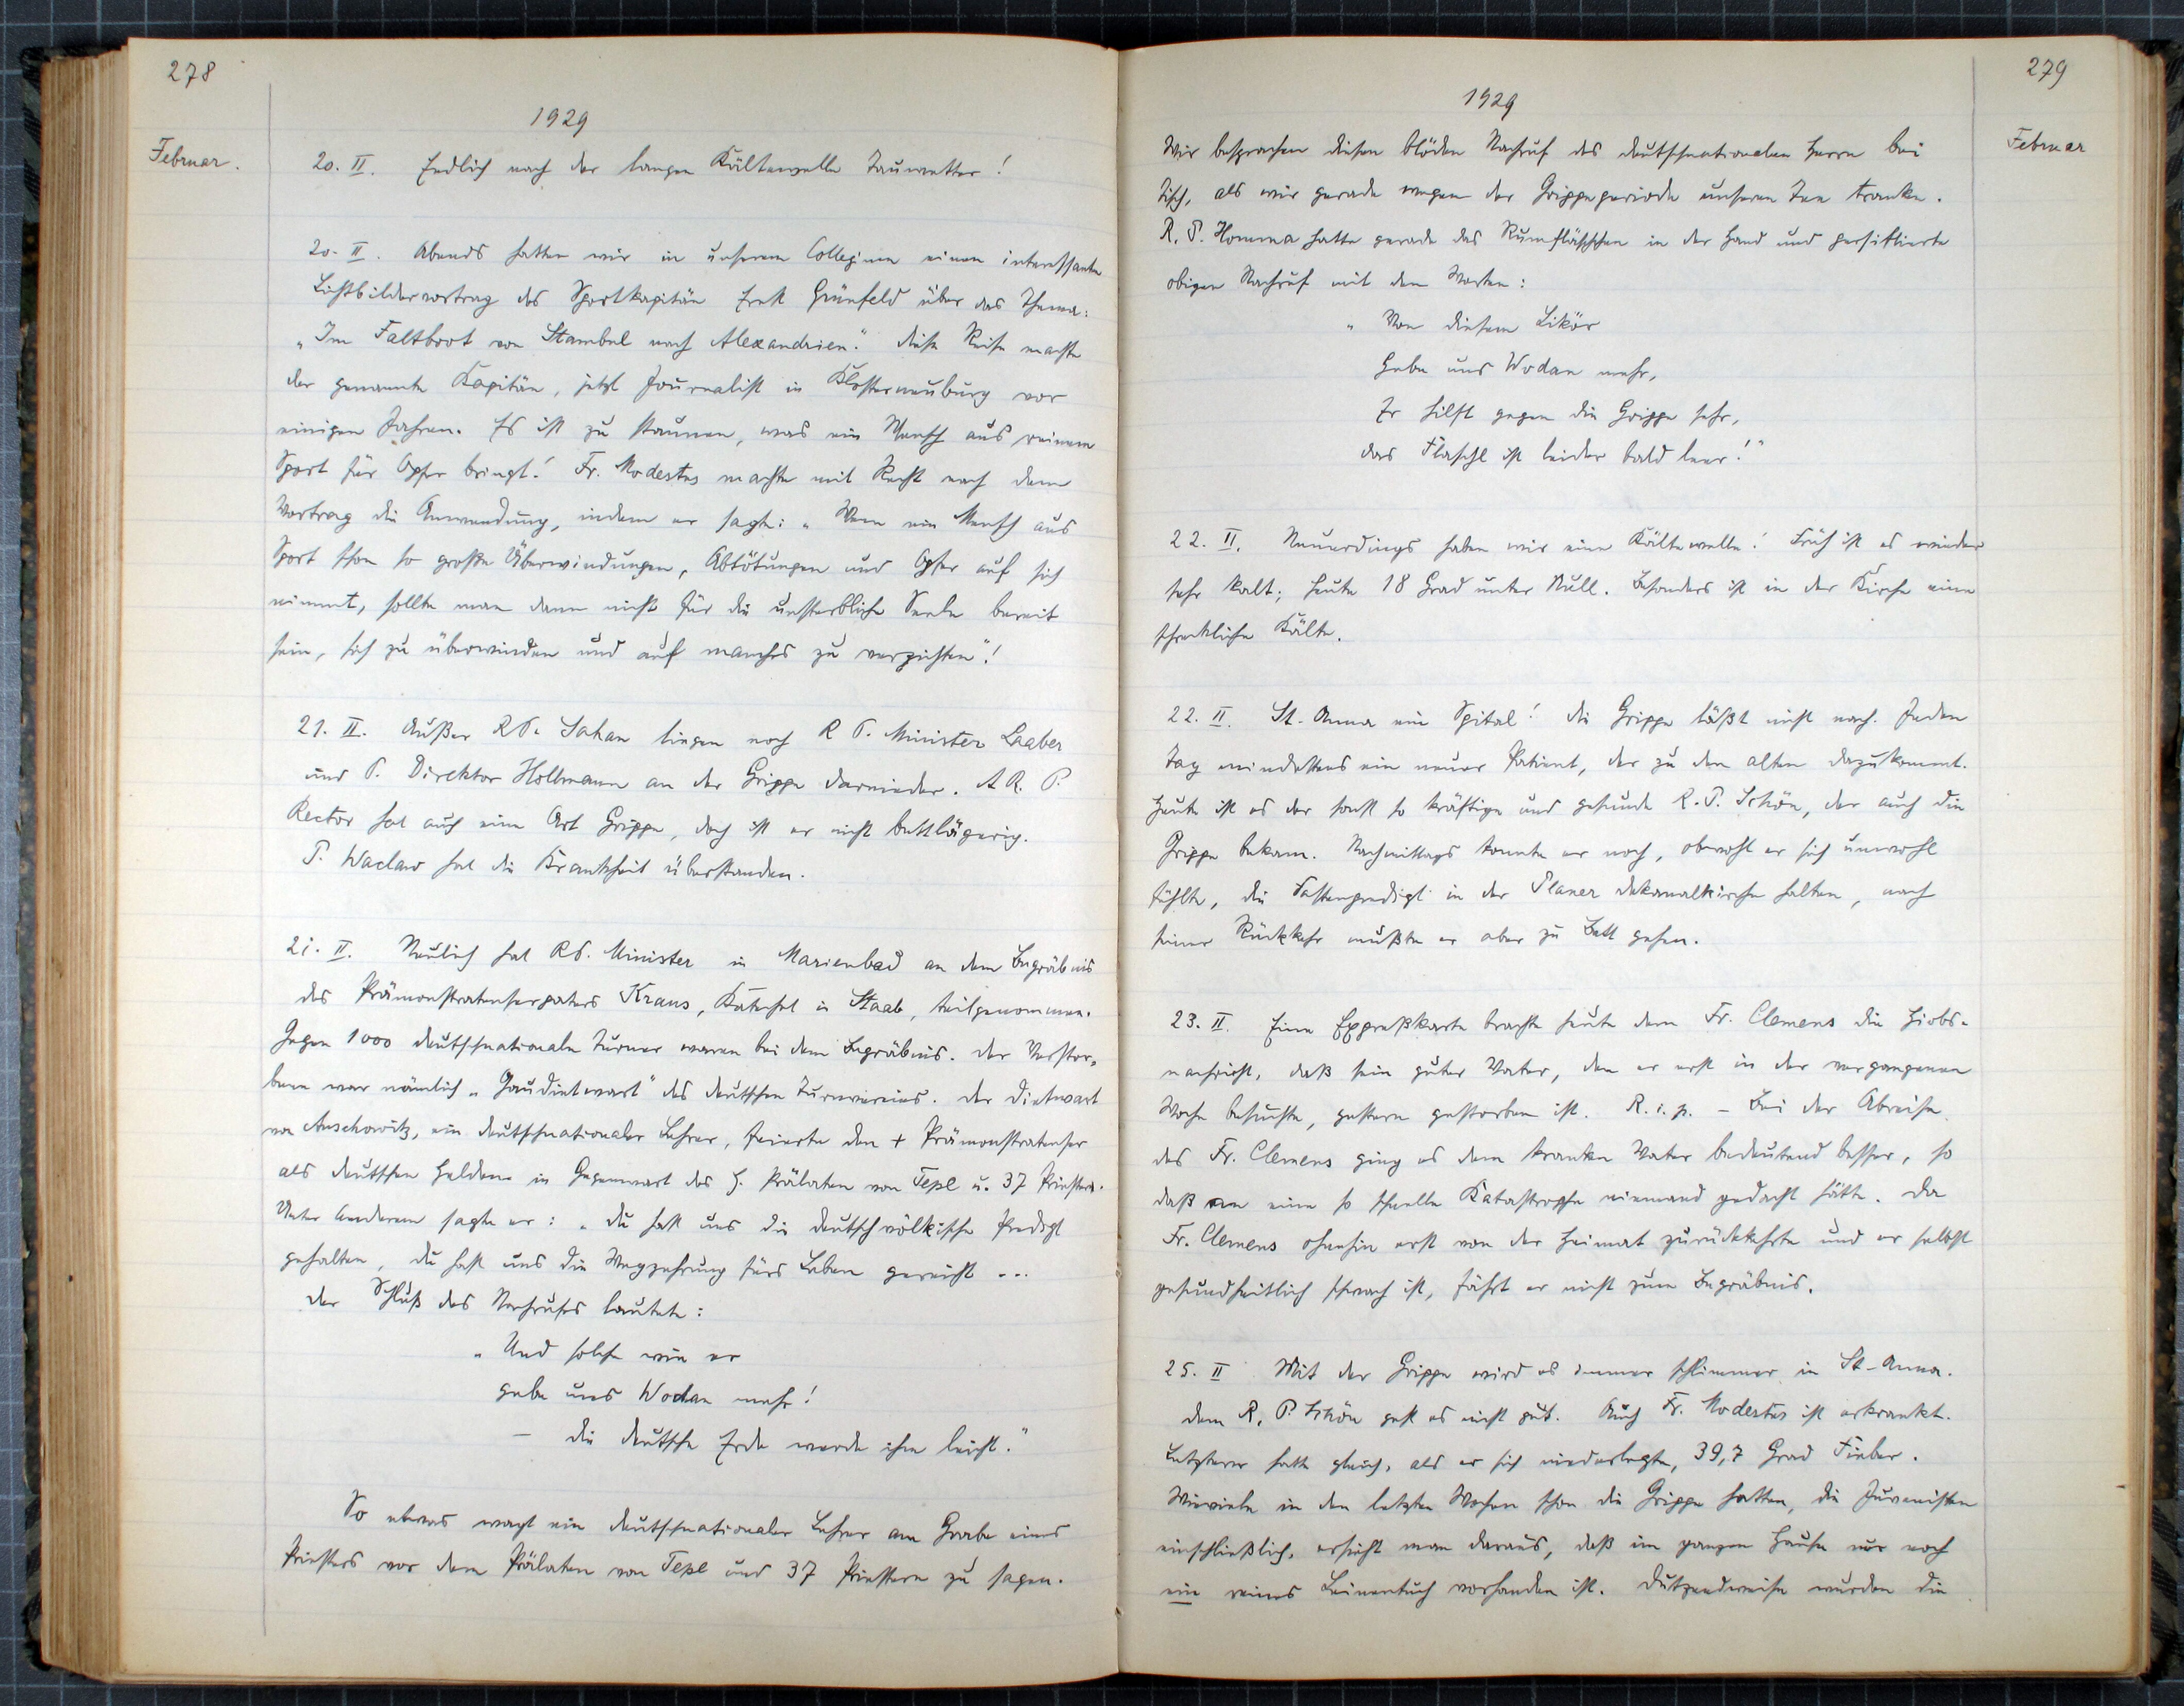 278
1929
Februar.
20. II. Endlich nach der langen Kältewelle Tauwetter!
20. II. Abends hatten wir in unserem Collegium einen interessanten
Lichtbildervortrag des Sportkapitän Ernst Grünfeld über das Thema:
„Im Faltboot von Stambul nach Alexandrien." Diese Reise machte
der genannte Kapitän, jetzt Journalist in Klosterneuburg vor
einigen Jahren. Es ist zu staunen, was ein Mensch aus reinem
Sport für Opfer bringt! Fr. Modestus machte mit Recht nach dem
Vortrag die Anwendung, indem er sagte: „Wenn ein Mensch aus
Sport schon so große Überwindungen, Abtötungen und Opfer auf sich
nimmt, sollte man dann nicht für die unsterbliche Seele bereit
sein, sich zu überwinden und auf manches zu verzichten"!
21. II. Außer R P. Sahan liegen noch R P. Minister Laaber
und P. Direktor Hollmann an der Grippe darnieder. A R. P.
Rector hat auch eine Art Grippe, doch ist er nicht bettlägerig.
P. Waclaw hat die Krankheit überstanden.
21. II. Neulich hat RP. Minister in Marienbad an dem Begräbnis
des Prämonstratenserpaters Kraus, Katechet in Staab, teilgenommen.
Gegen 1000 deutschnationale Turner waren bei dem Begräbnis. Der Verstor-
bene war nämlich „Gaudietwart" des deutschen Turnvereines. Der Dietwart
von Auschowitz, ein deutschnationaler Lehrer, feierte den + Prämonstratenser
als deutschen Helden in Gegenwart des H. Prälaten von Tepl u. 37 Priestern.
Unter anderem sagte er: „Du hast uns die deutschvölkische Predigt
gehalten, du hast uns die Wegzehrung fürs Leben gereicht ...
Der Schluß des Nachrufes lautete:
„Und solche wie er
gebe uns Wodan mehr!
– die deutsche Erde werde ihm leicht."
So etwas wagt ein deutschnationaler Lehrer am Grabe eines
Priesters vor dem Prälaten von Tepl und 37 Priestern zu sagen.
279
1929
Februar
Wir besprachen diesen blöden Nachruf des deutschnationalen Herrn bei
Tisch, als wir gerade wegen der Grippeperiode unseren Tee tranken.
R. P. Homma hatte gerade das Rumfläschchen in der Hand und persiflierte
obigen Nachruf mit den Worten:
„Von diesem Likör
Gebe uns Wodan mehr,
Er hilft gegen die Grippe sehr,
das Flaschl ist leider bald leer!"
22. II. Neuerdings haben wir eine Kältewelle! Früh ist es wieder
sehr kalt; heute 18 Grad unter Null. Besonders ist in der Kirche eine
schreckliche Kälte.
22. II. St. Anna ein Spital! Die Grippe läßt nicht nach. Jeden
Tag mindestens ein neuer Patient, der zu den alten dazukommt.
Heute ist es der sonst so kräftige und gesunde R. P. Schön, der auch die
Grippe bekam. Nachmittags konnte er noch, obwohl er sich unwohl
fühlte, die Fastenpredigt in der Planer Dekanalkirche halten, nach
seiner Rückkehr mußte er aber zu Bett gehen.
23. II. Eine Expreßkarte brachte heute dem Fr. Clemens die Hiobs-
nachricht, daß sein guter Vater, den er erst in der vergangenen
Woche besuchte, gestern gestorben ist. R. i. p. – Bei der Abreise
des Fr. Clemens ging es dem kranken Vater bedeutend besser, so
daß an eine so schnelle Katastrophe niemand gedacht hätte. Da
Fr. Clemens ohnehin erst von der Heimat zurückkehrte und er selbst
gesundheitlich schwach ist, fährt er nicht zum Begräbnis.
25. II Mit der Grippe wird es immer schlimmer in St. Anna.
Dem R. P. Schön geht es nicht gut. Auch Fr. Modestus ist erkrankt.
Letzterer hatte gleich, als er sich niederlegte, 39,7 Grad Fieber.
Wieviele in den letzten Wochen schon die Grippe hatten, die Juvenisten
einschließlich, ersieht man daraus, daß im ganzen Hause nur noch
ein reines Leinentuch vorhanden ist. Dutzendweise wurden die